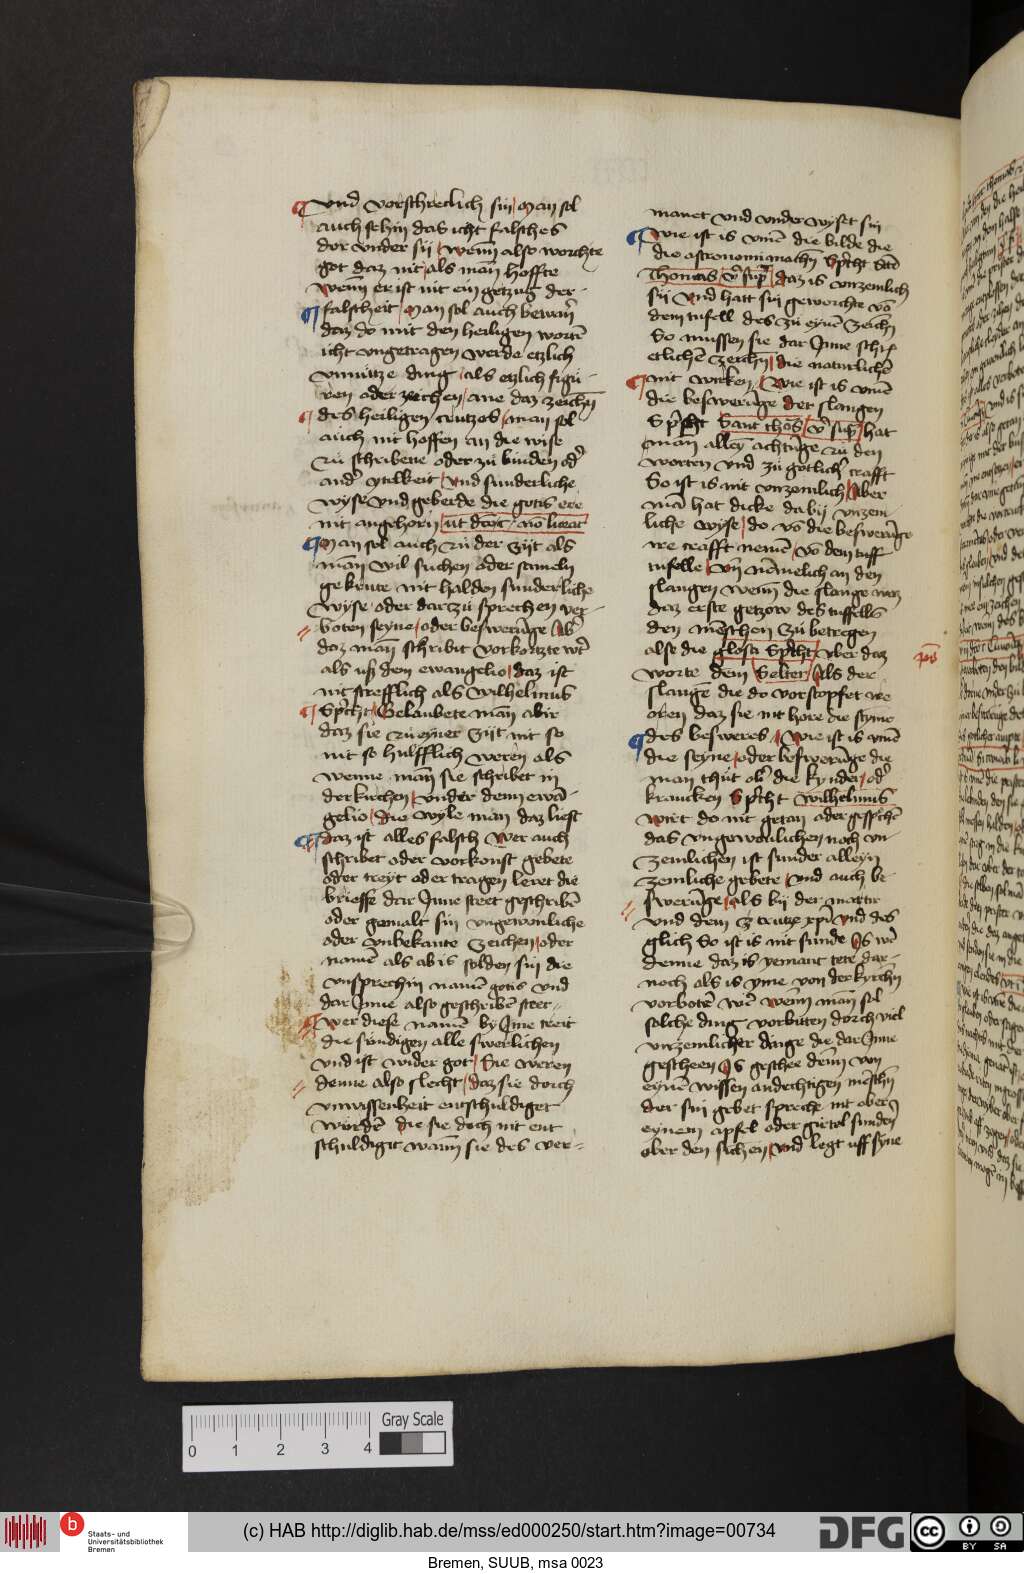 vnd vorschreclich sin man sol
auch sehin das icht falsches
dor vnder sij wenn also worchte
got daz nit als man hoffte
wenn er ist nit ein getzug der
falscheit man sol auch bewarn
daz do mit den heiligen worten
icht vngetragen werde etzlich
vnnutze ding als etzlich figu-
ren oder zeichen ane daz zeichen
des heiligen crutzes man sol
auch nit hoffen an die wise
zu schribene oder zu binden od'
and' ytilkeit vnd sunderliche
wyse vnd geberde die gotis ere
nit angehorn
Man sol auch zu der zijt als
man wil suchen oder semeln
gekrute nit halden sunderliche
wyse oder dar zu sprechen ver-
boten seyne oder beswerunge ab'
daz man schribit vorkortzte w't
als uß dem ewangelio daz ist
nit strefflich als wilhelmus
sp'cht Gelaubete man abir
daz sie zu eyner zijt nit so
nit so hulfflich weren als
wenne man sie schribet in
der kirchen vnder dem ewa-
gelio die wyle man daz liest
daz ist alles falsch wer auch
schribet oder vorkoufft gebete
oder treyt oder tragen leret die
brieffe dar Inne steet geschriben
oder gemalt sin vngewonliche
oder vnbekante zeichen oder
namen als ab is solden sin die
vnsprechin namen gotis vnd
dar Inne also geschriben steet
wer diese namen by Ime treit
die sundigen alle swerlichen
vnd ist wider got Sie weren
denne also slecht daz sie dorch
vnwissenheit entschuldiget
worden die sie doch nit ent
schuldigit wann sie des ver-
manet vnd vnder wyset sin
wie ist is vmme die bilde die
die astronomi machen Sp'cht
Thomas v' sup' daz is vnzemlich
sij vnd hatt sin geworchte von
dem tufell des zu eynem zeichen
So mussen sie dar Inne schri-
etlichen zeichen die naturlichen
nit wirken Wie ist is vmme
die beswerunge der slangen
Sp'cht Sant thomas v' sup' hat
man alleyn achtunge zu den
worten vnd zu gotlicher crafft
So ist is nit vnzemlich Aber
man hat dicke da bij vnzem-
liche wyse do von die beswerunge
ire crafft nemen von dem tuff
tufelle vnd nemelich an den
slangen wenn die slange waz
daz erste getzow des tuffells
den menschen zu betregen
alse die glosa sp'cht vber daz
worte dem Selter Als der
slangen die do vorstopfet ire
oren daz sie nit hore die styme
des besweres Wie ist is vmme
die seyne oder beswerunge die
man thut ob' die kynder od'
krancken Sp'cht Wilhelmus
wirt do nit getan oder gesprochen
das vngewonlichen noch vn-
zemlichen ist sunder alleyn
zemliche gebete vnd auch be-
swerunge als bij der martir
vnd dem crutze xpi vnd des
glich So ist is nit sunde Is wer
denne daz is yemant tete dar-
noch als is yme von der kyrchen
vorboten wer wenn man sol
solche ding vorbiten dorch viel
vnzemlicher dinge die dar Inne
gescheen Is geschee denn von
eynem wissen andechtigen menschen
der sin gebet spreche nit ober
eynem apfel oder gurtel sunder
ober den sichen vnd legt uff syne
0 1 2 3 4
Gray Scale
b
Staats- und
Universitätsbibliothek
Bremen
(c) HAB http://diglib.hab.de/mss/ed000250/start.htm?image=00734
DFG
cc BY SA
Bremen, SUUB, msa 0023